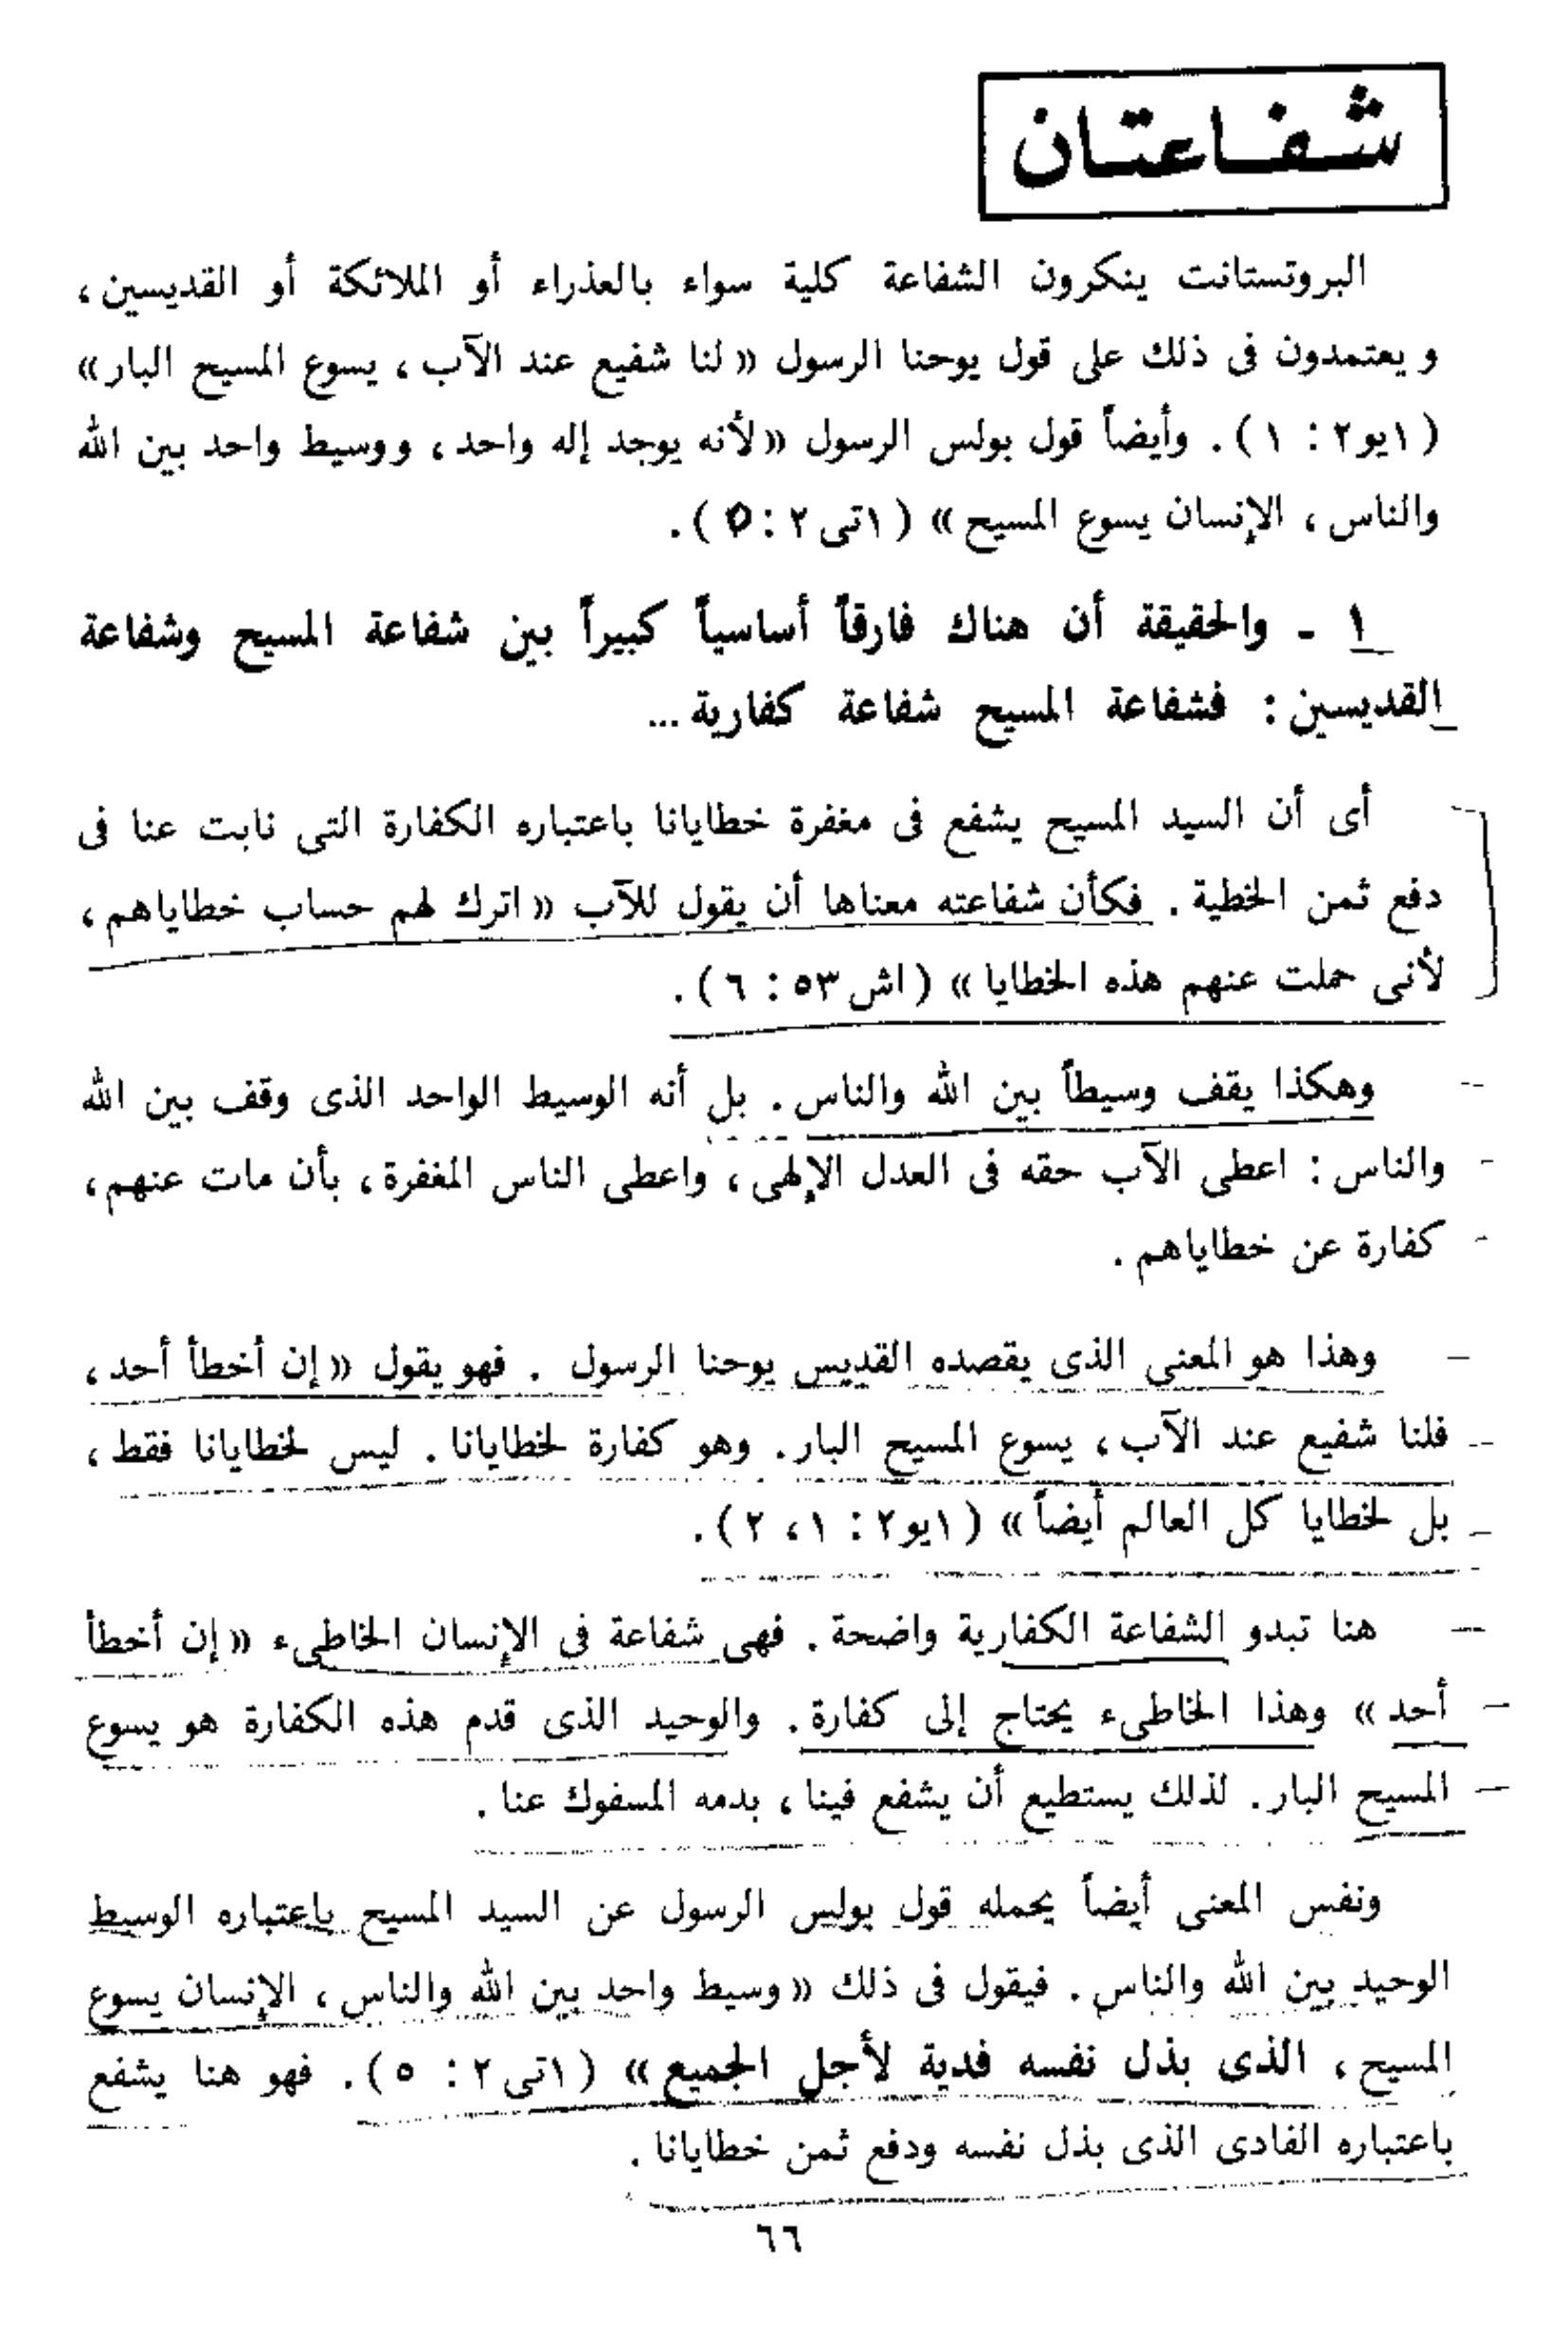 شفاعتان
البروتستانت ينكرون الشفاعة كلية سواء بالعذراء أو الملائكة أو القديسين ،
و يعتمدون فى ذلك على قول يوحنا الرسول « لنا شفيع عند الآب ، يسوع المسيح البار »
( ١يو٢ : ١ ) . وأيضاً قول بولس الرسول « لأنه يوجد إله واحد ، ووسيط واحد بين الله
والناس ، الإنسان يسوع المسيح » ( ١تى٢ : ٥ ) .
١ - والحقيقة أن هناك فارقاً أساسياً كبيراً بين شفاعة المسيح وشفاعة
القديسين : فشفاعة المسيح شفاعة كفارية ...
أى أن السيد المسيح يشفع فى مغفرة خطايانا باعتباره الكفارة التى نابت عنا فى
دفع ثمن الخطية . فكأن شفاعته معناها أن يقول للآب « اترك لهم حساب خطاياهم ،
لأنى حملت عنهم هذه الخطايا » ( اش٥٣ : ٦ ) .
وهكذا يقف وسيطاً بين الله والناس . بل أنه الوسيط الواحد الذى وقف بين الله
والناس : اعطى الآب حقه فى العدل الإلهى ، واعطى الناس المغفرة ، بأن مات عنهم ،
كفارة عن خطاياهم .
وهذا هو المعنى الذى يقصده القديس يوحنا الرسول . فهو يقول « إن أخطأ أحد ،
فلنا شفيع عند الآب ، يسوع المسيح البار . وهو كفارة لخطايانا . ليس لخطايانا فقط ،
بل لخطايا كل العالم أيضاً » ( ١يو٢ : ١ ، ٢ ) .
هنا تبدو الشفاعة الكفارية واضحة . فهى شفاعة فى الإنسان الخاطىء « إن أخطأ
أحد » وهذا الخاطىء يحتاج إلى كفارة . والوحيد الذى قدم هذه الكفارة هو يسوع
المسيح البار . لذلك يستطيع أن يشفع فينا ، بدمه المسفوك عنا .
ونفس المعنى أيضاً يحمله قول بولس الرسول عن السيد المسيح باعتباره الوسيط
الوحيد بين الله والناس . فيقول فى ذلك « وسيط واحد بين الله والناس ، الإنسان يسوع
المسيح ، الذى بذل نفسه فدية لأجل الجميع » ( ١تى٢ : ٥ ) . فهو هنا يشفع
باعتباره الفادى الذى بذل نفسه ودفع ثمن خطايانا .
٦٦